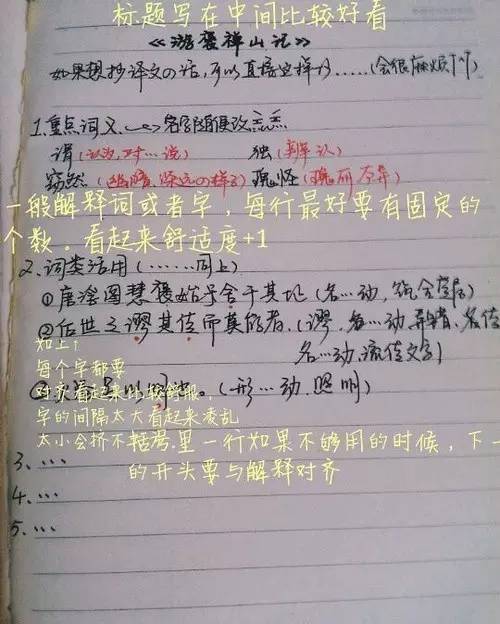 标题写在中间比较好看
《游褒禅山记》
如果想抄译文の话,可以直接这样抄……(会很麻烦↑↑)
1.重点词义
谓(认为,对…说) 独(辨认)
窈然(幽暗,深远の样子) 瑰怪
一般解释词或者字，每行最好要有固定的
个数。看起来舒适度+1
2.词类活用(……同上)
①唐浮图慧褒始舍于其址(名…动,
②后世之谬其传而莫能名者.(谬,名…动
如上↑
名…动,流传文字)
每个字都要
对齐看起来比较舒服,
(形…动.照明)
字的间隔太大看起来凌乱
太小会挤不
括号里一行如果不够用的时候，下一
的开头要与解释对齐
3.…
4.…
5.…